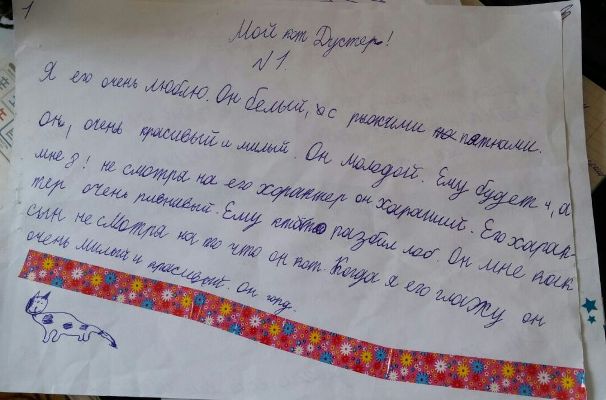 1
Мой кот Дустер!
N 1.
Я его очень люблю. Он белый, с рыжими пятнами.
Он, очень красивый и милый. Он молодой. Ему будет 4, а
мне 3! не смотря на его характер он хараший. Его харак-
тер очень ривнивый. Ему разбил лоб. Он мне как
сын не смотря на то что он кот. Когда я его глажу он
очень милый и красивый. он